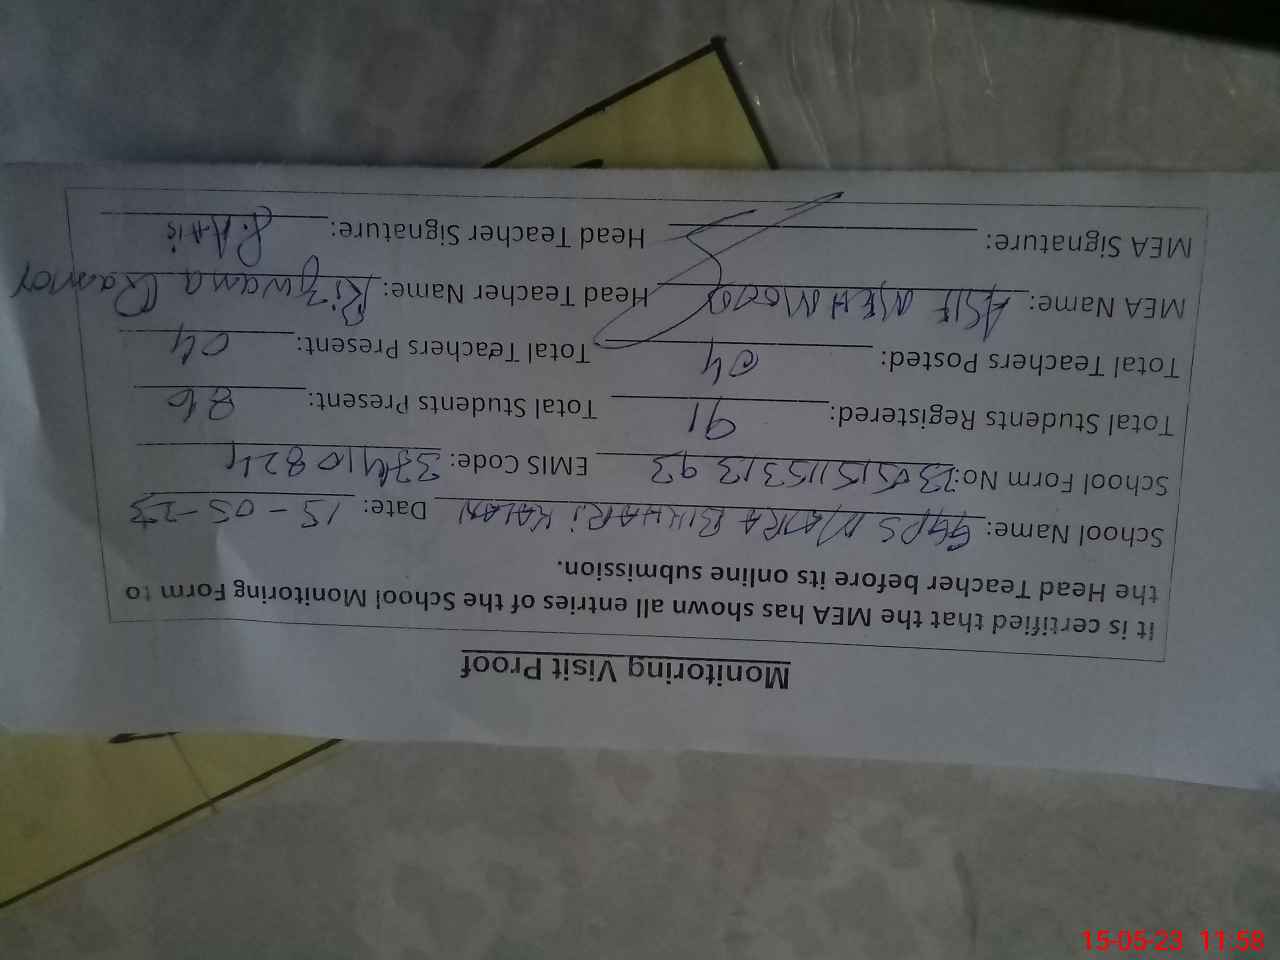 Monitoring Visit Proof
It is certified that the MEA has shown all entries of the School Monitoring Form to
the Head Teacher before its online submission.
School Name: GGPS MOHRA BIKHARI KALAN Date: 15-05-23
School Form No: EMIS Code: 37410824
Total Students Registered: 91 Total Students Present: 86
Total Teachers Posted: 04 Total Teachers Present: 04
MEA Name: ASIF MEHMOOD Head Teacher Name: Rizwana
MEA Signature: Head Teacher Signature:
15-05-23 11:58